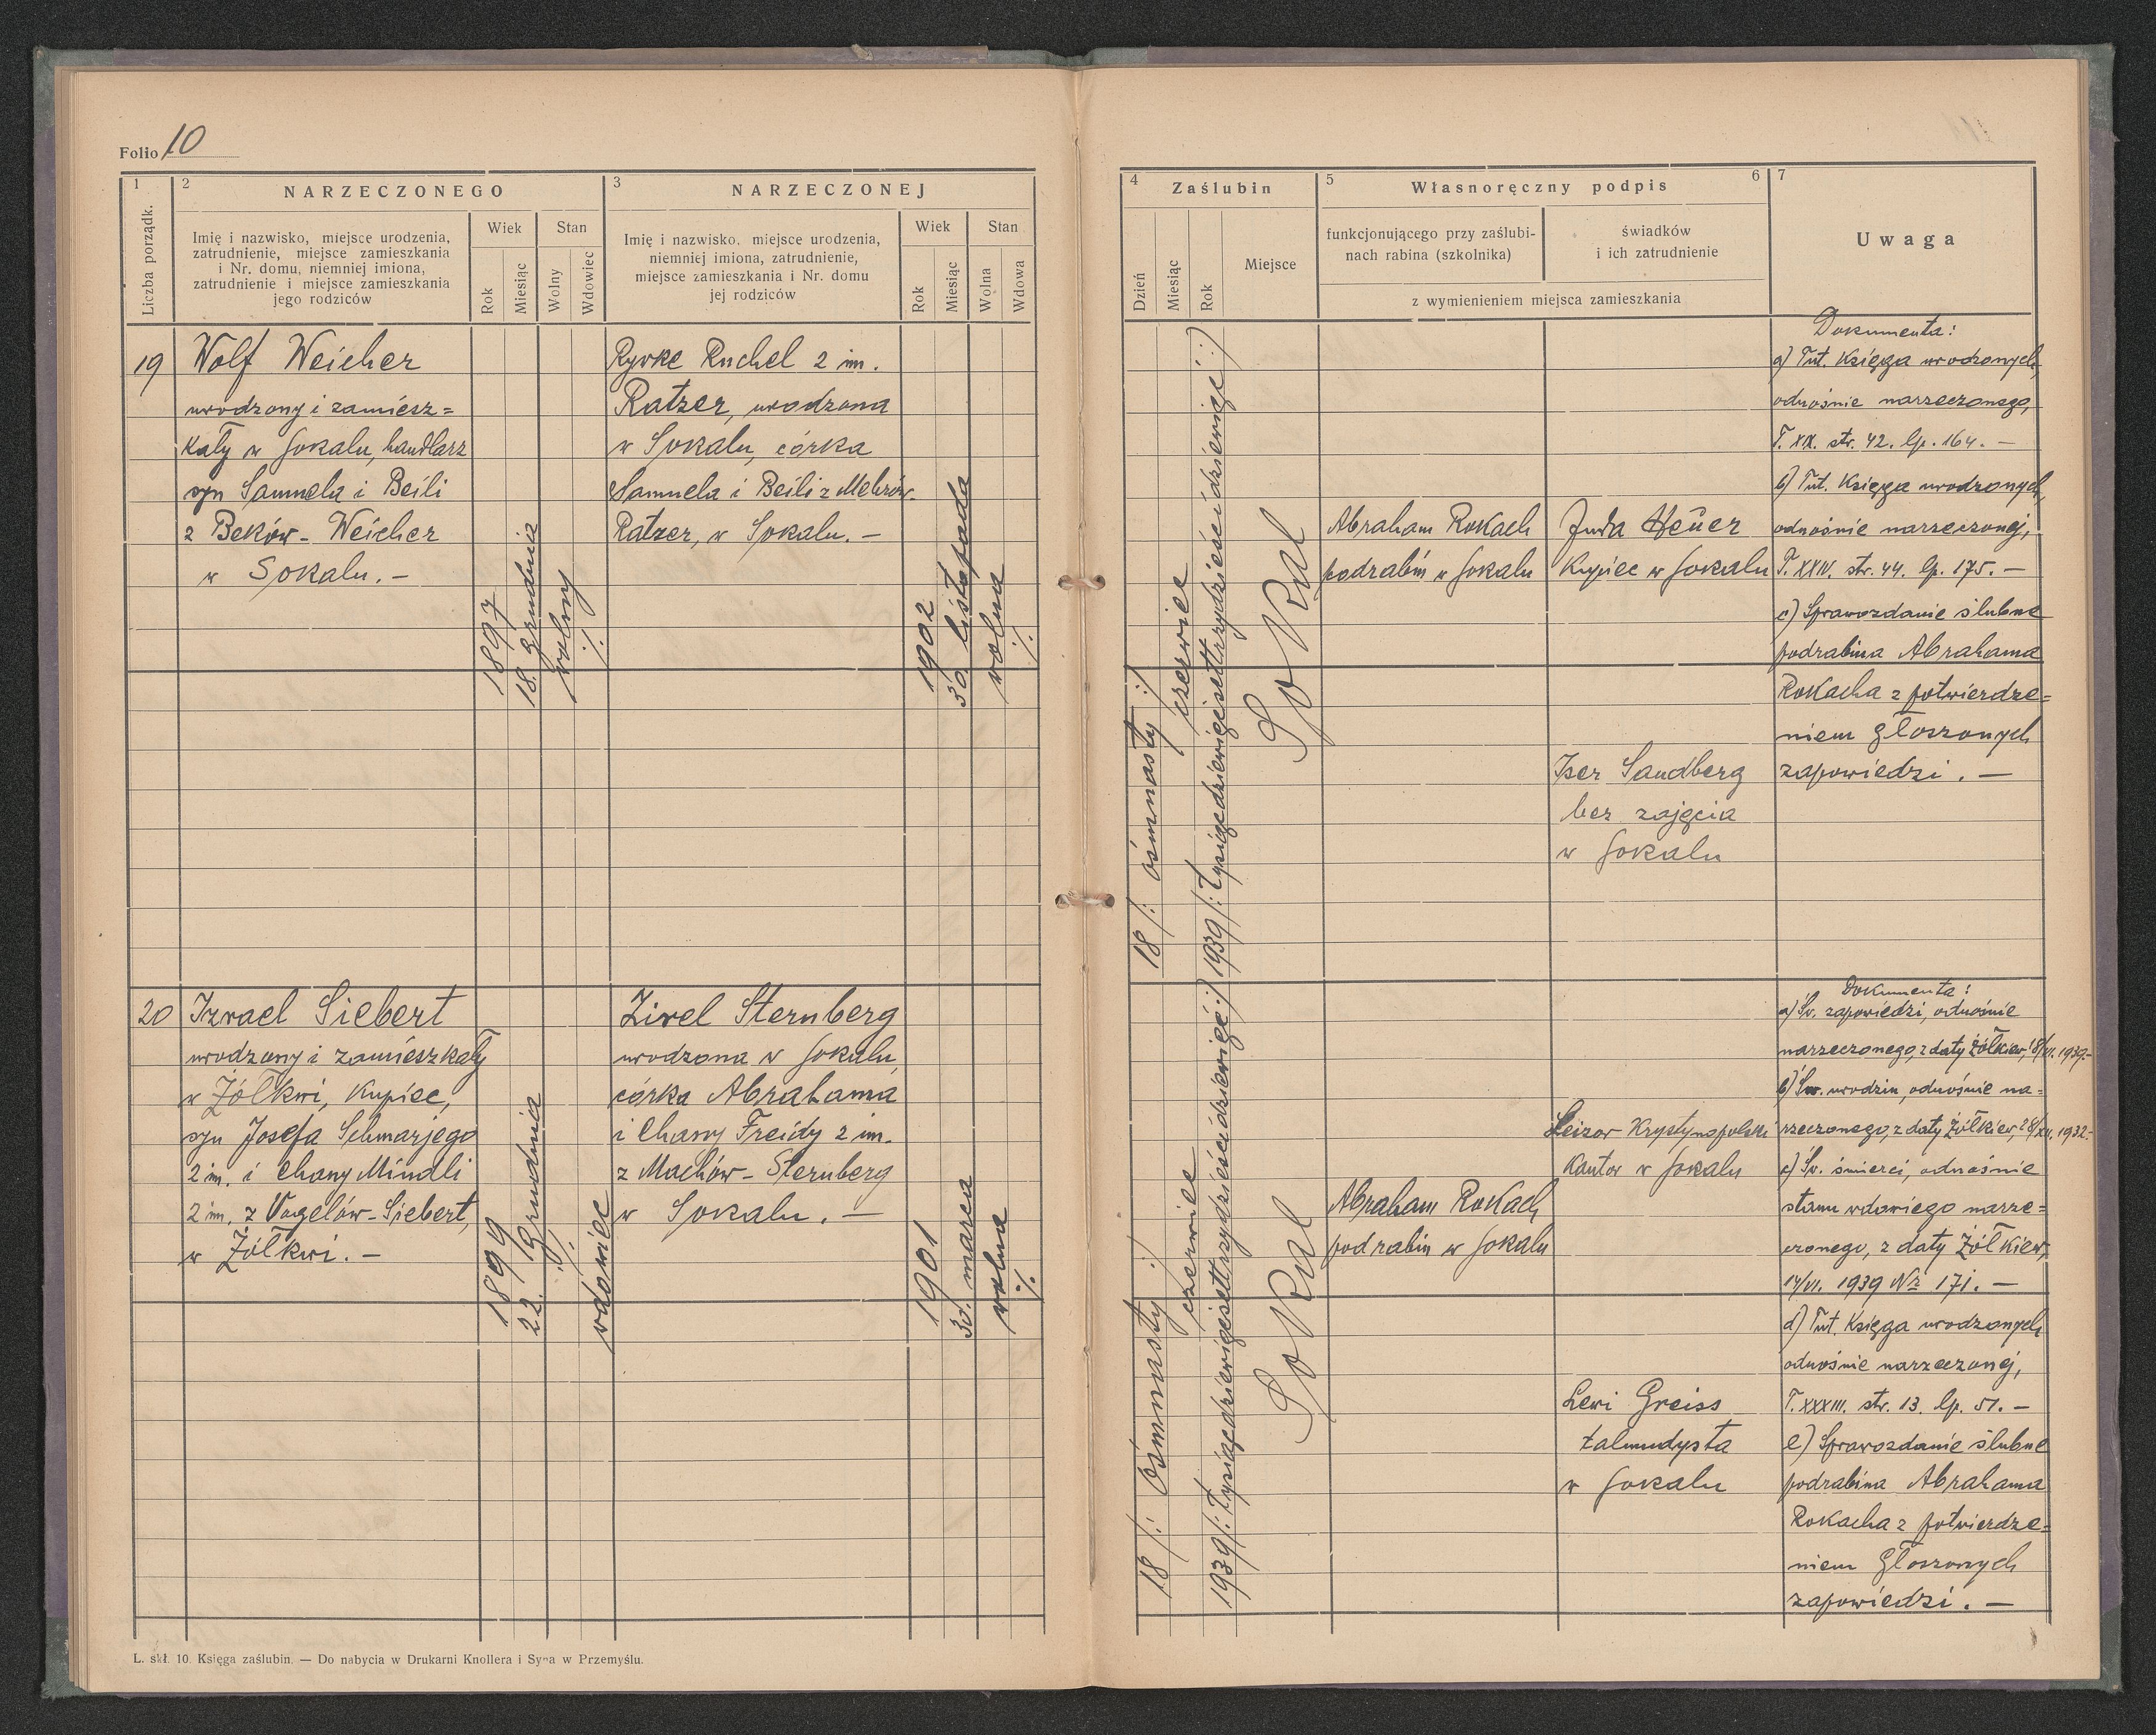 Folio 10
1
2
NARZECZONEGO
3
NARZECZONEJ
Liczba porządk.
Imię i nazwisko, miejsce urodzenia,
zatrudnienie, miejsce zamieszkania
i Nr. domu, niemniej imiona,
zatrudnienie i miejsce zamieszkania
jego rodziców
Wiek
Stan
Rok
Miesiąc
Wolny
Wdowiec
Imię i nazwisko, miejsce urodzenia,
niemniej imiona, zatrudnienie,
miejsce zamieszkania i Nr. domu
jej rodziców
Wiek
Stan
Rok
Miesiąc
Wolna
Wdowa
19
Wolf Weicher
urodzony i zamiesz=
kały w Sokalu, handlarz
syn Samuela i Beili
z Beków-Weicher
w Sokalu.-
1897
18. grudnia
wolny
./.
Rywke Ruchel 2 im.
Ratzer, urodzona
w Sokalu, córka
Samuela i Beili z Melzrów-
Ratzer, w Sokalu.-
1902
30. listopada
wolna
./.
20
Izrael Siebert
urodzony i zamieszkały
w Żółkwi, Kupiec,
syn Josefa Schmarjego
2 im. i Chany Mindli
2 im. z Vogelów-Siebert,
w Żółkwi.-
1899
22. grudnia
./.
wdowiec
Zirel Sternberg
urodzona w Sokalu,
córka Abrahama
i Chany Freidy 2 im.
z Machów-Sternberg
w Sokalu.-
1901
30. marca
wolna
./.
L. skł. 10. Księga zaślubin. — Do nabycia w Drukarni Knollera i Syna w Przemyślu.
4
Zaślubin
5
Własnoręczny podpis
6
7
Dzień
Miesiąc
Rok
Miejsce
funkcjonującego przy zaślubi-
nach rabina (szkolnika)
świadków
i ich zatrudnienie
z wymienieniem miejsca zamieszkania
Uwaga
18 /: ośmnasty :/
czerwiec
1939 /: tysiącdziewięćsettrzydzieścidziewięć :/
Sokal
Abraham Rokach
podrabin w Sokalu
Juda Heuer
Kupiec w Sokalu
Iser Sandberg
bez zajęcia
w Sokalu
Dokumenta:
a) Tut. Księga urodzonych,
odnośnie narzeczonego,
T. XX. str. 42. lp. 164.-
b) Tut. Księga urodzonych,
odnośnie narzeczonej,
T. XXIV. str. 44. lp. 175.-
c) Sprawozdanie ślubne
podrabina Abrahama
Rokacha z potwierdze=
niem głoszonych
zapowiedzi.-
18 /: ośmnasty :/
czerwiec
1939 /: tysiącdziewięćsettrzydzieścidziewięć :/
Sokal
Abraham Rokach
podrabin w Sokalu
Leizor Krystynopolski
Kantor w Sokalu
Lewi Greiss
talmudysta
w Sokalu
Dokumenta:
a) Św. zapowiedzi, odnośnie
narzeczonego, z daty Żółkiew, 18/VI. 1939.-
b) Św. urodzin, odnośnie na=
rzeczonego, z daty Żółkiew, 28/XII. 1932.-
c) Św. śmierci, odnośnie
stanu wdowiego narze=
czonego, z daty Żółkiew,
14/VI. 1939 Nr 171.-
d) Tut. Księga urodzonych
odnośnie narzeczonej,
T. XXXIII. str. 13. lp. 51.-
e) Sprawozdanie ślubne
podrabina Abrahama
Rokacha z potwierdze=
niem głoszonych
zapowiedzi.-